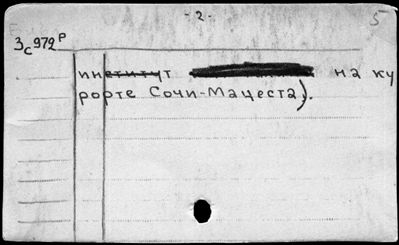 - 2 - 5
3с972Р
институт на ку
рорте Сочи-Мацеста).